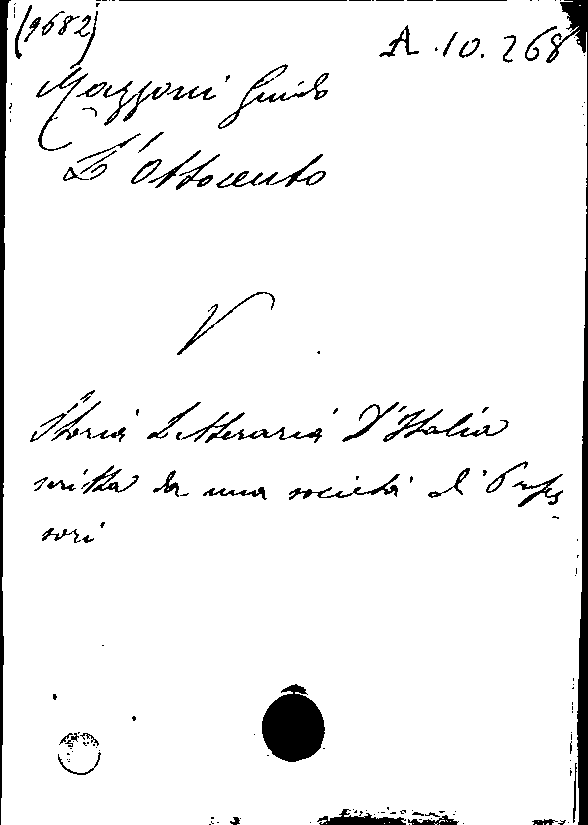 (9682)
A.10.268
Mazzoni Guido
L'Ottocento
V.
Storia Letteraria D'Italia
scritta da una società di Profes-
sori